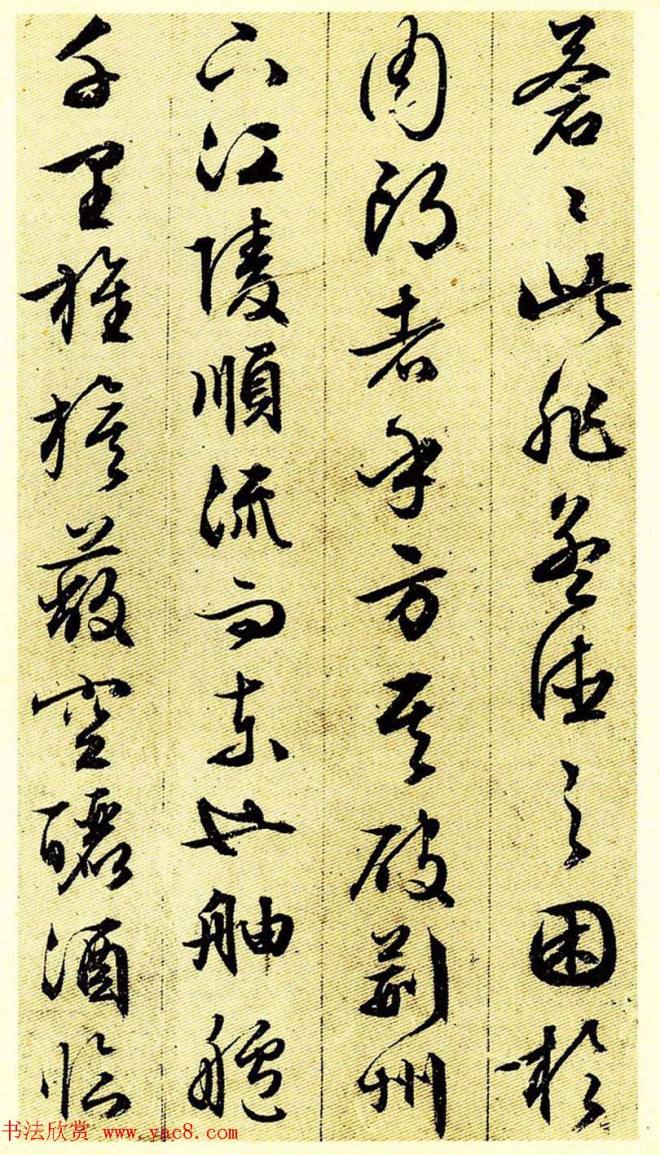 蒼〻此非孟德之困於
周郎者乎方其破荊州
下江陵順流而東也舳艫
千里旌旗蔽空釃酒臨
书法欣赏 www.yac8.com